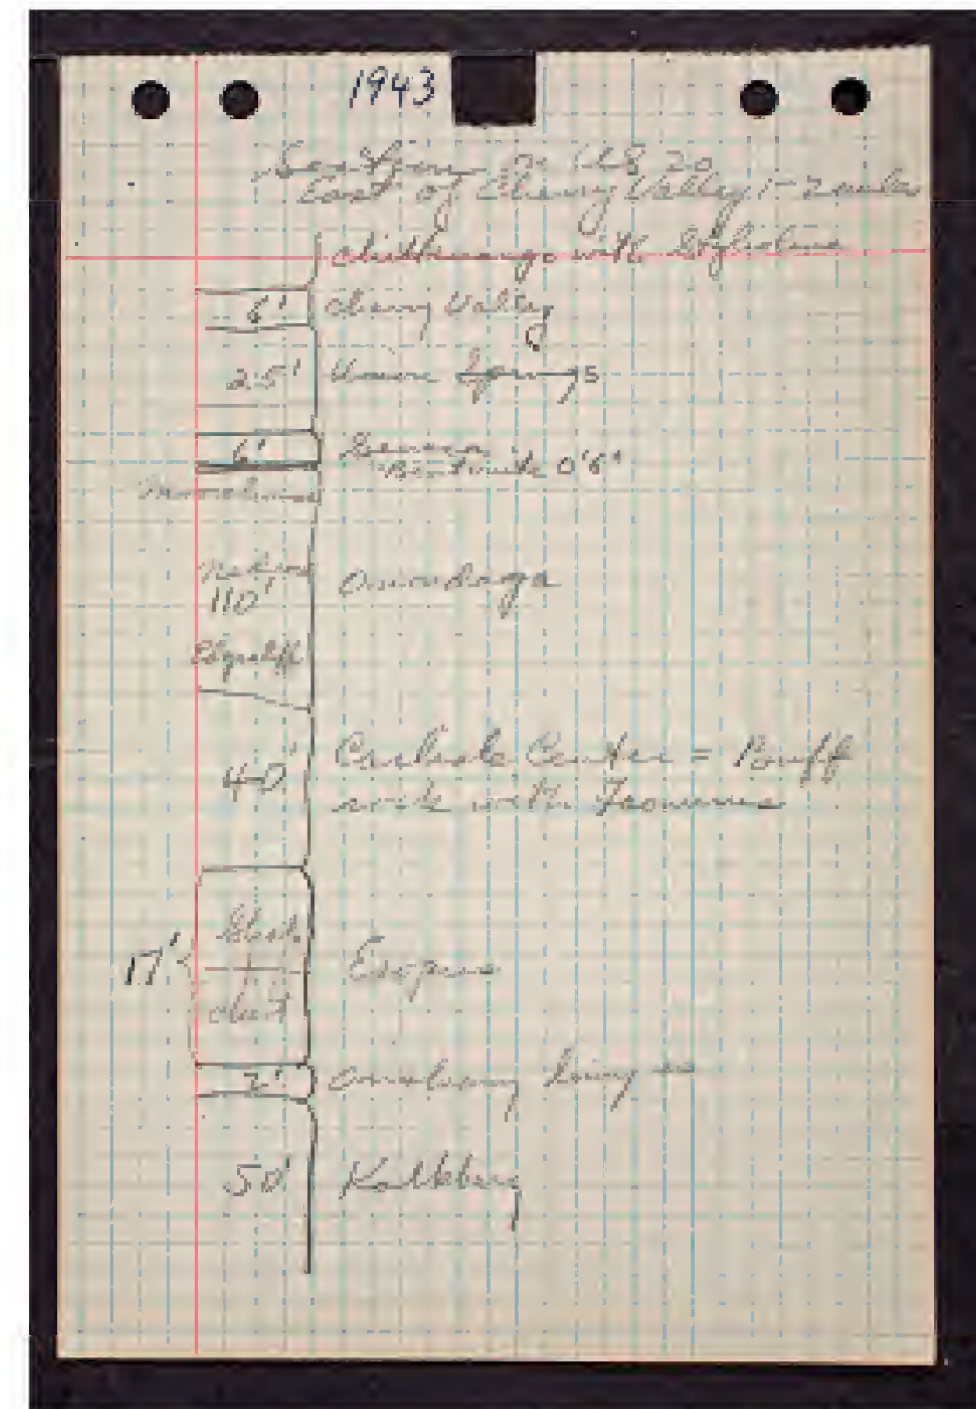 1943
Section on US 20
East of Cherry Valley 1-2 miles
Chittenango with Styliolina
6' Cherry Valley
25' Union Springs
6' Seneca
Bentonite 0'6"
Moorehouse
Nedrow
110' Onondaga
Edgecliff
40' Carlisle Center = Buff
rock with Taonurus
17' Shale
Esopus
chert
2' Oriskany
50' Kalkberg